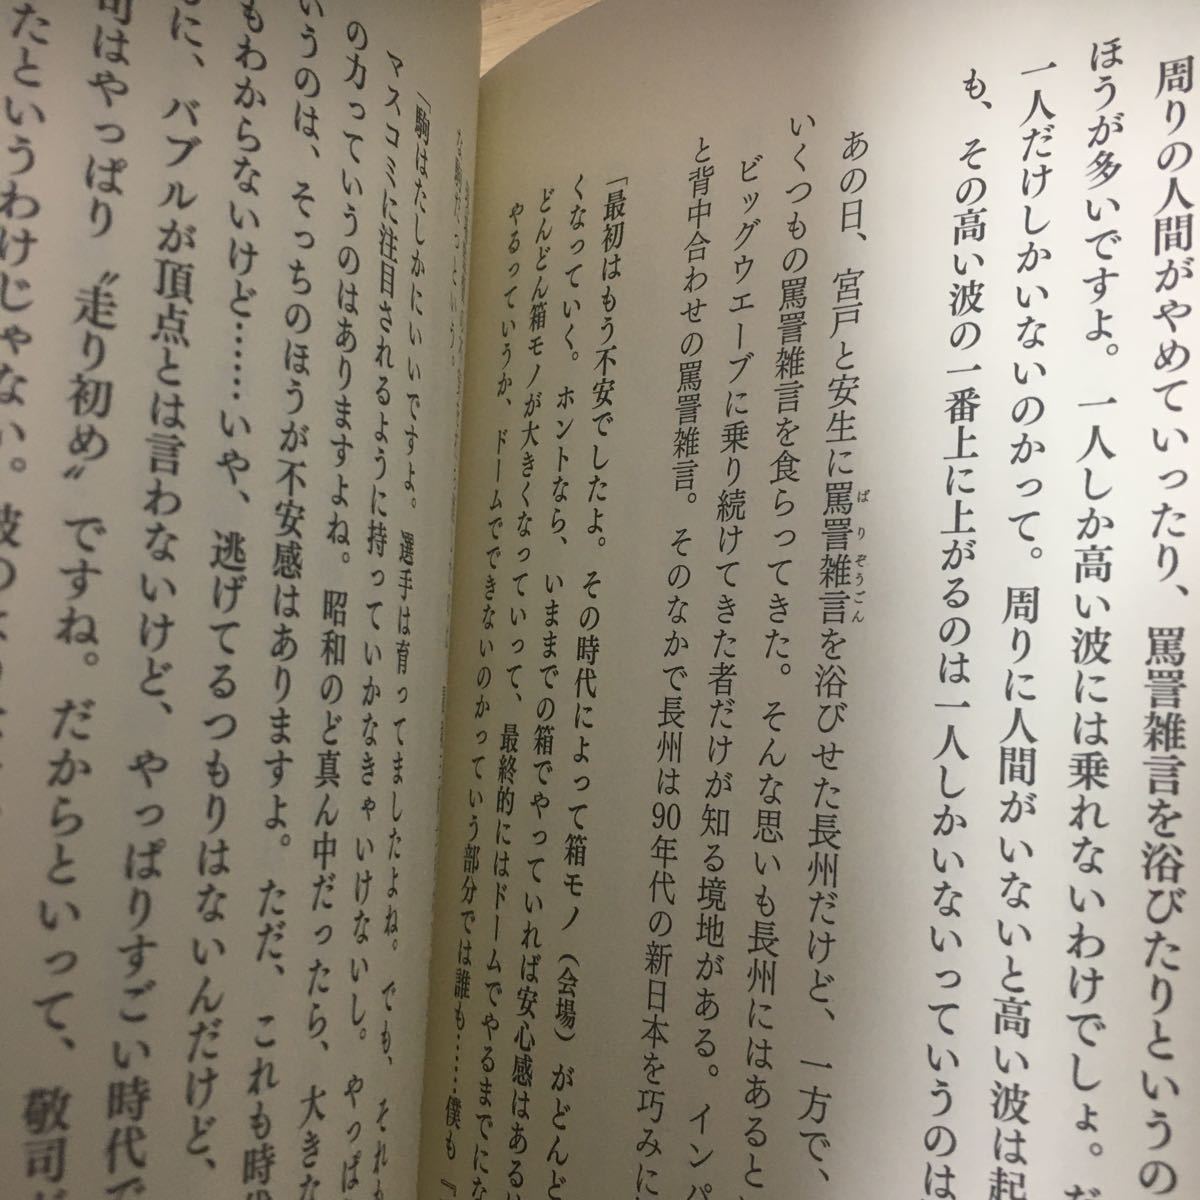 周りの人間がやめていったり、罵詈雑言を浴びたりというの
ほうが多いですよ。一人しか高い波には乗れないわけでしょ。だ
一人だけしかいないのかって。周りに人間がいないと高い波は起
も、その高い波の一番上に上がるのは一人しかいないっていうのは
あの日、宮戸と安生に罵詈雑言を浴びせた長州だけど、一方で、
ばりぞうごん
いくつもの罵詈雑言を食らってきた。そんな思いも長州にはあると
ビッグウエーブに乗り続けてきた者だけが知る境地がある。インパ
と背中合わせの罵詈雑言。そのなかで長州は90年代の新日本を巧みに
「最初はもう不安でしたよ。その時代によって箱モノ（会場）がどんど
くなっていく。ホントなら、いままでの箱でやっていれば安心感はある
どんどん箱モノが大きくなっていって、最終的にはドームでやるまでにな
やるっていうか、ドームでできないのかっていう部分では誰も……僕も『
「駒はたしかにいいですよ。選手は育ってましたよね。でも、それも
マスコミに注目されるように持っていかなきゃいけないし。やっぱ
の力っていうのはありますよね。昭和のど真ん中だったら、大きな
いうのは、そっちのほうが不安感はありますよ。ただ、これも時代
もわからないけど……いや、逃げてるつもりはないんだけど、
に、バブルが頂点とは言わないけど、やっぱりすごい時代で
司はやっぱり〝走り初め〟ですね。だからといって、敬司
たというわけじゃない。波の